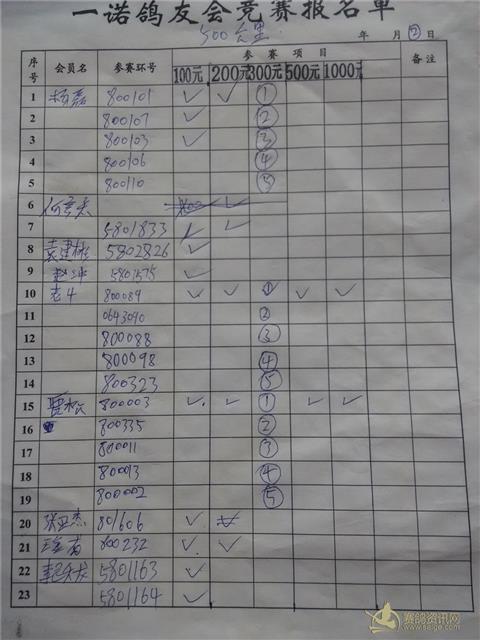 一诺鸽友会竞赛报名单
500公里
年 月 日
序号 会员名 参赛环号 参赛项目 备注
100元 200元 300元 500元 1000元
1 杨磊 800101 ✓ ✓ ①
2 800107 ✓ ②
3 800103 ✓ ③
4 800106 ④
5 800110 ⑤
6
7 5801833 ✓ ✓
8 袁建彬 5802826 ✓
9 5801575 ✓
10 老牛 800089 ✓ ✓ ① ✓ ✓
11 0643090 ②
12 800088 ③
13 800098 ④
14 800323 ⑤
15 贾松 800003 ✓ ✓ ① ✓ ✓
16 800335 ②
17 800011 ③
18 80013 ④
19 800002 ⑤
20 张亚杰 801606 ✓
21 800232 ✓ ✓
22 5801163 ✓
23 5801164 ✓
赛鸽资讯网
www.saige.com